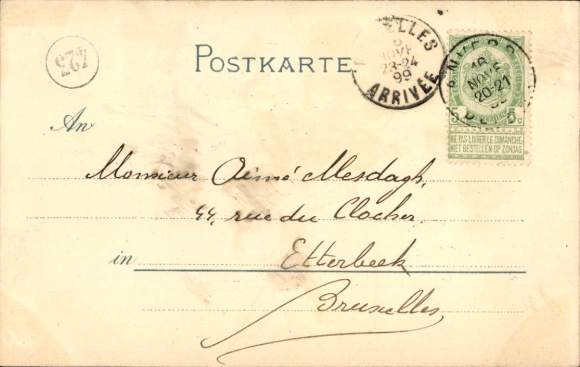 423
POSTKARTE
ELLES
NOVE
23-24
99
ARRIVÉE
ANVERS
16
NOVE
20-21
5c
NE PAS LIVRER LE DIMANCHE
NIET BESTELLEN OP ZONDAG
An
Monsieur Aimé Mesdagh,
44, rue du Clocher.
in Etterbeek
Bruxelles